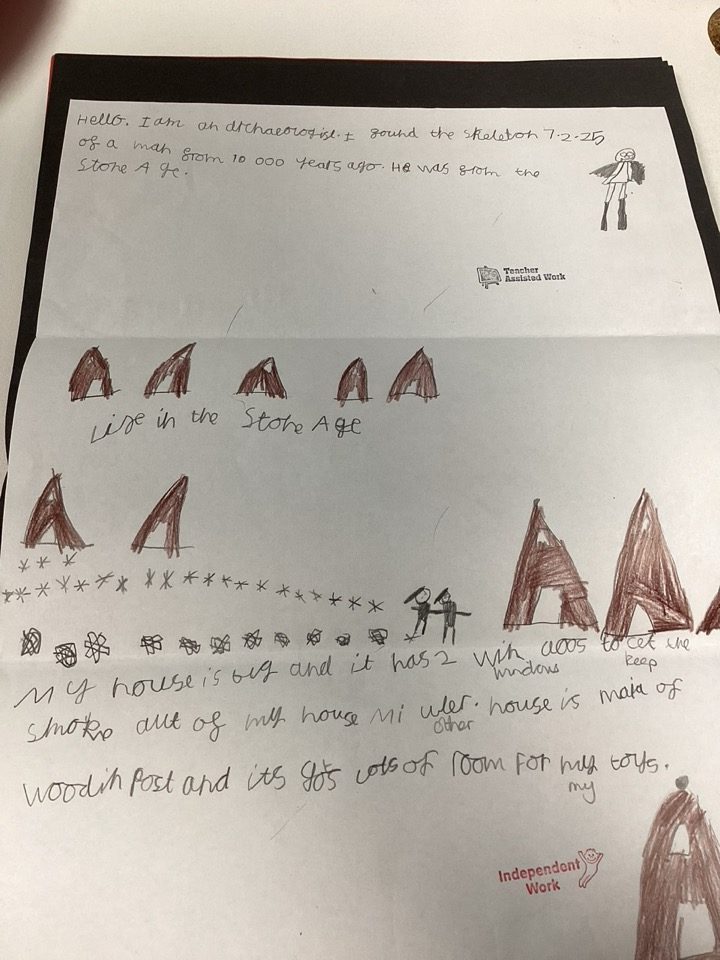 Hello. I am an archaeologist. I found the skeleton 7.2.25
of a man from 10 000 years ago. He was from the
Stone Age.
Teacher
Assisted Work
Life in the Stone Age
My house is big and it has 2 win doos to cet the
windows keep
smoke aut of my house Mi uler. house is maid of
other
woodin Post and its gos lots of room for my toys.
my
Independent
Work